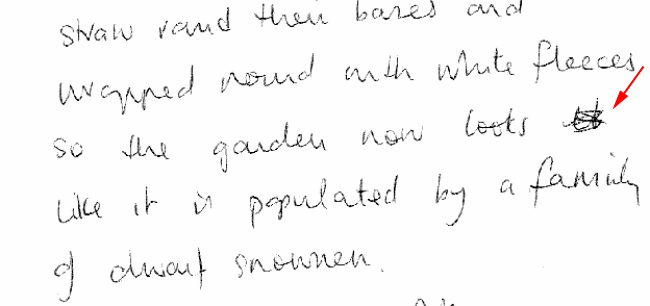 straw round their bases and
wrapped round with white fleeces,
so the garden now looks
like it is populated by a family
of dwarf snowmen.